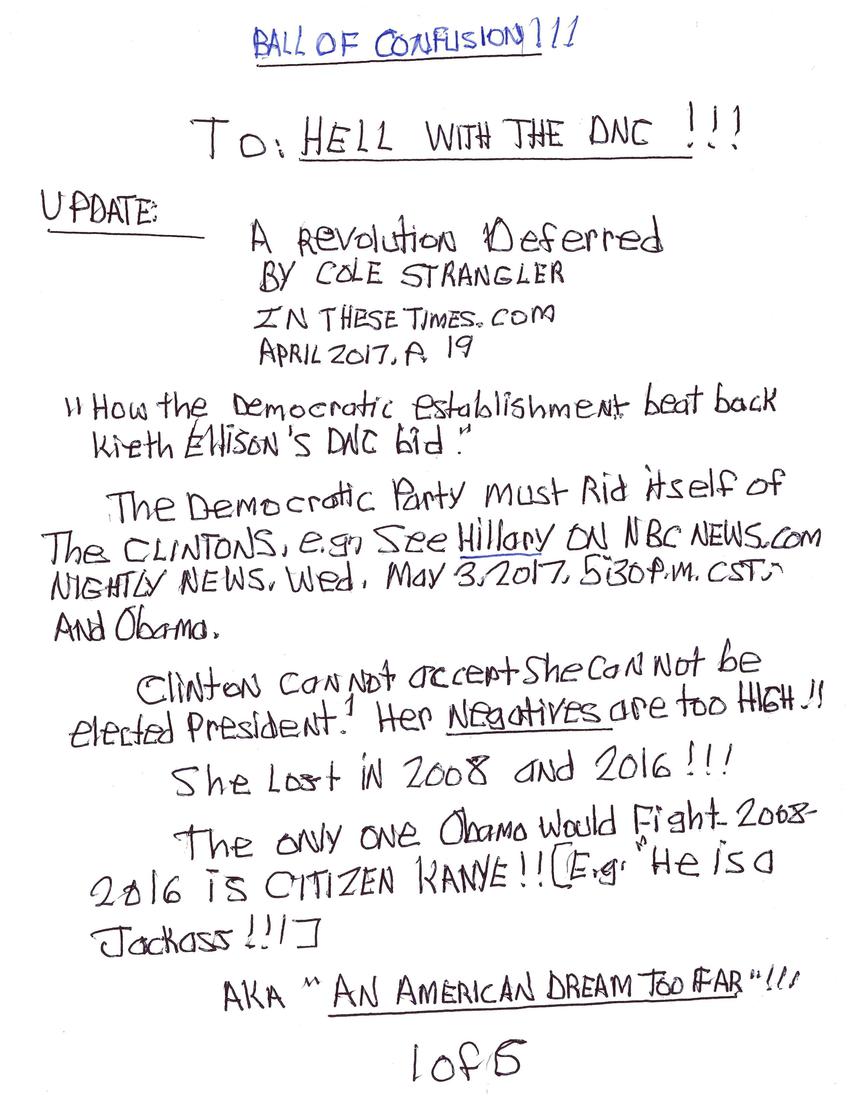 BALL OF CONFUSION!!!
TO: HELL WITH THE DNC !!!
UPDATE:
A Revolution Deferred
BY COLE STRANGLER
IN THESE TIMES.COM
APRIL 2017. A 19
"How the Democratic establishment beat back
Kieth Ellison's DNC bid."
The Democratic Party must Rid itself of
The CLINTONS, e.g., See Hillary ON NBC NEWS.com
NIGHTLY NEWS, Wed. May 3, 2017, 5:30 P.M. CST.,
And Obama.
Clinton CANNot accept She CaNNot be
elected President.! Her Negatives are too HIGH.!!
She Lost iN 2008 and 2016 !!!
The only one Obama Would Fight 2008-
2016 is CITIZEN KANYE!! [E.g. "He is a
Jackass !!!]
AKA "AN AMERICAN DREAM TOO FAR"!!!
1 of 5